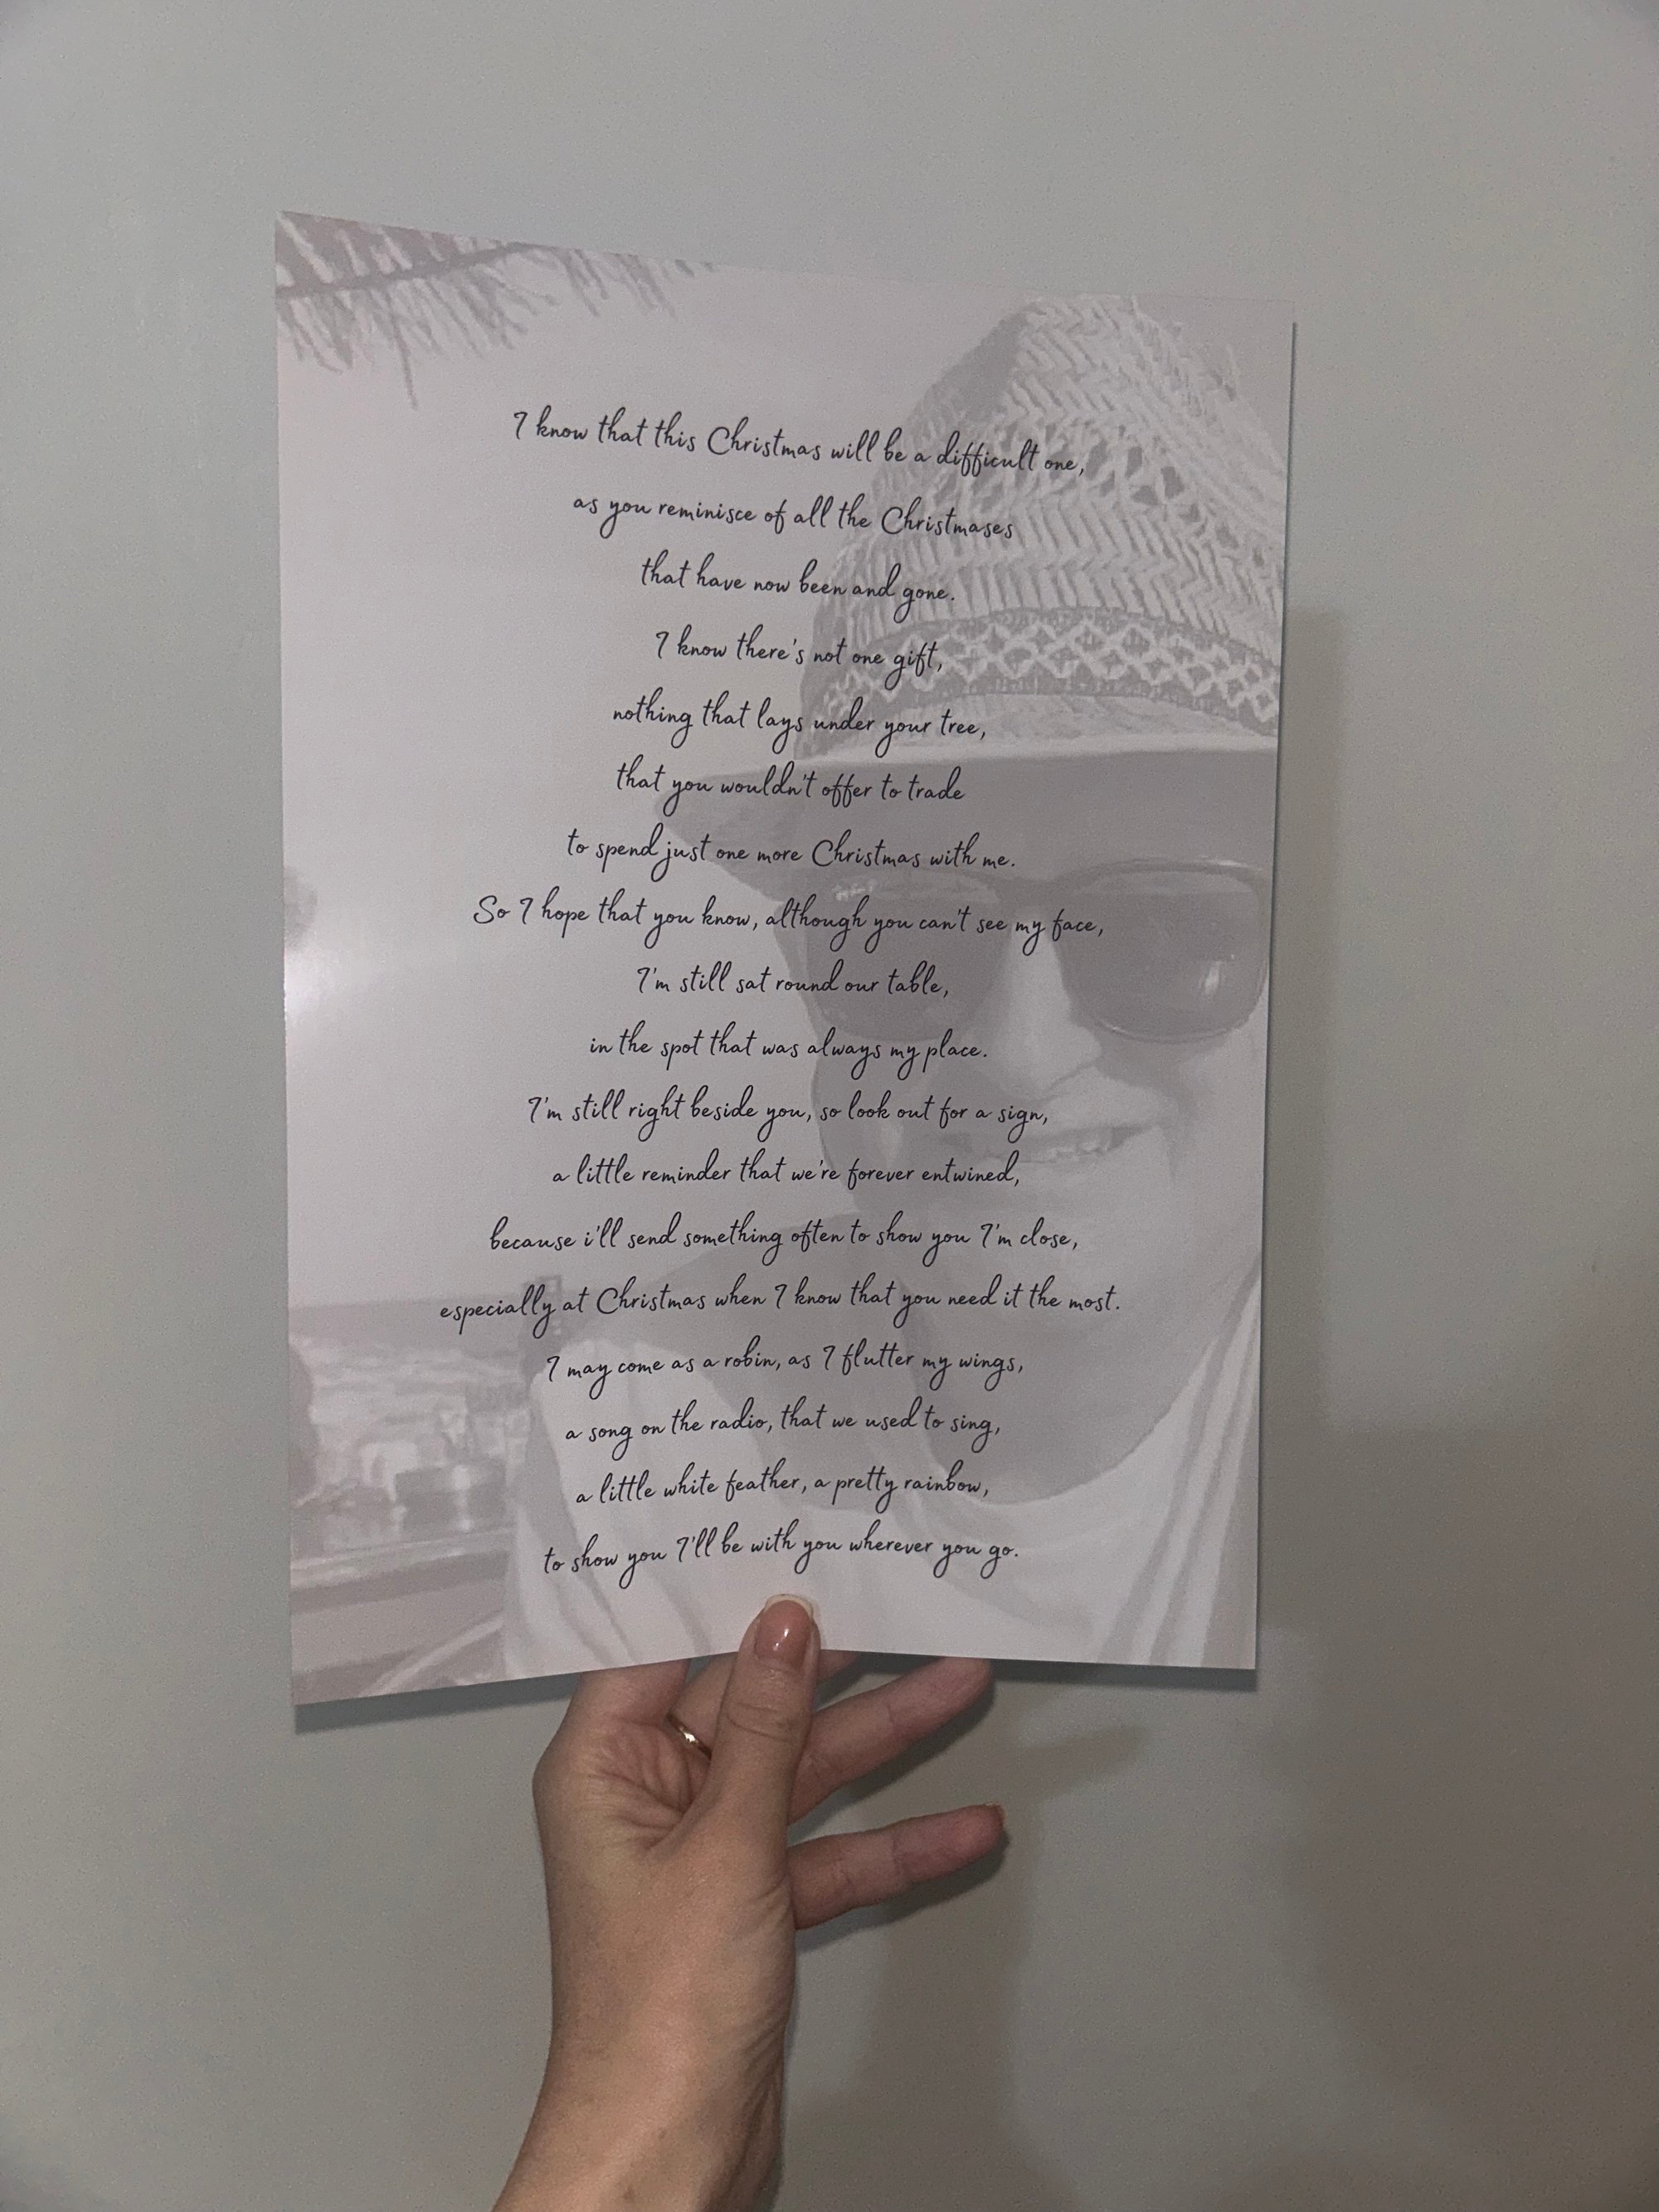 I know that this Christmas will be a difficult one,
as you reminisce of all the Christmases
that have now been and gone.
I know there's not one gift,
nothing that lays under your tree,
that you wouldn't offer to trade
to spend just one more Christmas with me.
So I hope that you know, although you can't see my face,
I'm still sat round our table,
in the spot that was always my place.
I'm still right beside you, so look out for a sign,
a little reminder that we're forever entwined,
because i'll send something often to show you I'm close,
especially at Christmas when I know that you need it the most.
I may come as a robin, as I flutter my wings,
a song on the radio, that we used to sing,
a little white feather, a pretty rainbow,
to show you I'll be with you wherever you go.